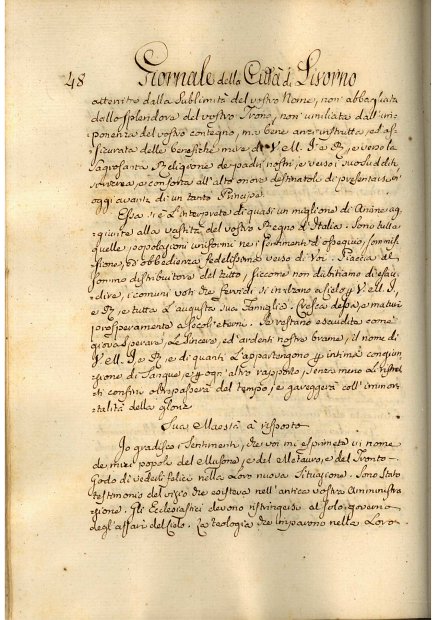 48 Giornale della Città di Livorno
atterrite dalla Sublimità del vostro Nome, non abbagliata
dallo splendore del vostro Trono, non umiliata dall'im-
ponenza del vostro contegno, ma bene anzi instrutta, ed as-
sicurata delle benefiche mire di V. M. I. e R., e verso la
Sagrosanta Religione de padri nostri, e verso i suoi
e conforta all'alto onore destinatole di presentarsi in
oggi avanti di un tanto Principe.
Essa si è l'interprete di quasi un miglione di Anime ag-
giunte alla vastità del vostro Regno d'Italia. Sono tutte
quelle popolazioni uniformi ne i sentimenti d'ossequio, sommis-
sione, ed obbedienza fedelissima verso di Voi. Piaccia al
sommo distributore del tutto, siccome non dubitiamo di esau-
dire, i comuni voti che fervidi si inalzano al Cielo p V. M. I.
e R. e tutta l'augusta sua Famiglia. Cresca dessa, e maturi
prosperamente a secoli eterni. Se restano esaudite come
giova sperare, le sincere, ed ardenti nostre brame, il nome di
V. M. I. e R. e di quanti l'appartengono p intima congiun-
zione di Sangue, e p ogn'altro rapporto, senza meno i ristret-
ti confini oltrepasserà del tempo, e gareggerà coll'immor-
talità della gloria
Sua Maestà à risposto
Io gradisco i Sentimenti, che voi mi esprimete in nome
de miei popoli del Musone, e del Metauro, e del Tronto.
Godo di vederli felici nella Loro nuova Situazione. Sono stato
testimonio del vizio che esisteva nell'antica vostra Amministra
zione. Gli Ecclesiastici devono ristringersi al solo governo
degl'affari del Cielo. La teologia che imparono nella Loro